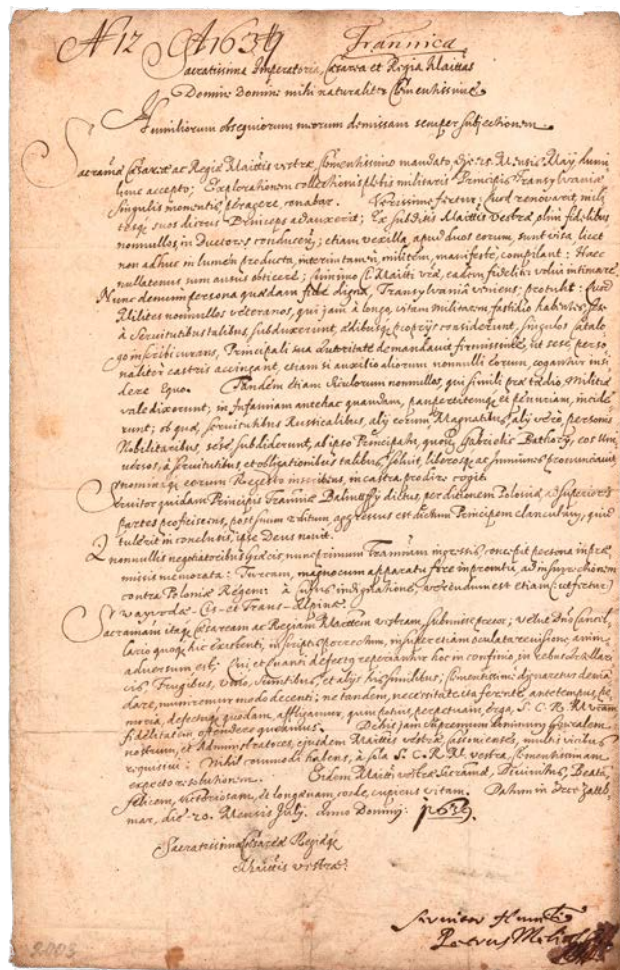 N 12 A 1639 Trannica
Sacratissima Imperatoria, Cæsarea et Regia Maiettas
Domine Domine mihi naturaliter Clementissime
Humiliorum obsequiorum meorum demissam semper subjectionem.
Sacramæ Cæsareæ ac Regiæ Maiettis vestræ Clementissimo mandato, die 15. Mensis Maÿ humi
lime accepto; Explorationem collectionis plebis militaris Principis Transylvaniæ
singulis momentis, peragere, conabar. Verissime fertur; quod renovarit, mili
tesq suos dictus Princeps adauxerit; Ex subditis Maiettis Vestræ, olim fidelibus,
nonnullos, in Ductores conducens; etiam vexilla, apud duos eorum, sunt visa, licet
non adhuc in lumen producta, interim tamen, militem, manifeste, compilant: Haec
nullatenus sum ausus obticere; Maiti vræ, eadem fideliter volui intimare.
Nunc demum persona quædam fide digna, Transylvania veniens; protulit: Quod
Milites nonnullos veteranos, qui jam à longo, vitam militarem, fastidio habentes, sese
à Servitutibus talibus, subduxerunt, ædibusq proprÿs considerunt, singulos catalo
go inscribi curans, Principali sua autoritate demandavit firmissime, ut sese perso
naliter castris accingant, etiam si auxilio aliorum nonnulli eorum, cogantur insi
dere equo. Tandem etiam Siculorum nonnullos, qui simili præ tædio, Militiæ
vale dixerunt; in Infamiam antehac quandam, paupertatemq et penuriam, incide
runt; ob quæ, servitutibus Rusticalibus, alÿ eorum Magnatibus, alÿ vero, personis
Nobilitaribus, sese subdiderunt, ab ipso Principatu, quondam Gabrielis Bathorÿ, eos uni
versos, à servitutibus et obligationibus talibus, solvit, liberosq ac Immunes pronunciavit
nominaq eorum Regesto inscribens, in castra prodire cogit.
Servitor quidam Principis Tranniæ dictus, per ditionem Poloniæ, ad superiores
partes proficiscens, post suum reditum, aggressus est dictum Principem clanculum, quid
tulerit in conclusis, ipse Deus novit.
nonnullis negotiatoribus Græcis, nunc primum Tranniam ingressis, concepit persona in præ
missis memorata: Turcam, magno cum apparatu fore in promptu, ad insurrectionem
contra Poloniæ Regem: à cujus indignatione, avertendum est etiam (ut fertur)
wayvodæ-Cis-et Trans-Alpinæ.
Sacramam itaq Cæsaream ac Regiam Maiettem vestram, submisse precor; velut Dno Cancel
lario quoq hic existenti, in scriptis porrectum, insuper etiam oculata revisione, anim
adversum est; Qui et Quanti defectus reperiantur hoc in confinio, in rebus
cis, Frugibus, vero, Sumtibus, et alÿs his similibus; Clementissime dignaretur deman
dare, muniremur modo decenti; ne tandem, necessitate ita ferente, ante tempus, pe
nuria, defectuq quodam, affligamur, quin potius, perpetuam, erga, S. C. R. M. vram
fidelitatem ostendere queamus. De his jam Supremum Generalem
nostrum, et Administratores, ejusdem Maiettis vestræ, multis vicibus
requisivi: Nihil commodi habens, à sola S. C. R. M. vestra, Clementissimam
expecto resolutionem. Eidem Maietti vestræ Sacramæ, Divinitus, Beatam
felicem, victoriosam, et longævam, corde, cupiens vitam. Datum in Arce Zattb
mar, die 20. Mensis Julÿ. Anno Domini: 1639.
Sacratissimæ Cæsareæ Regiæq
Maiettis vestræ:
Servitor Humilis
Petrus
9.003